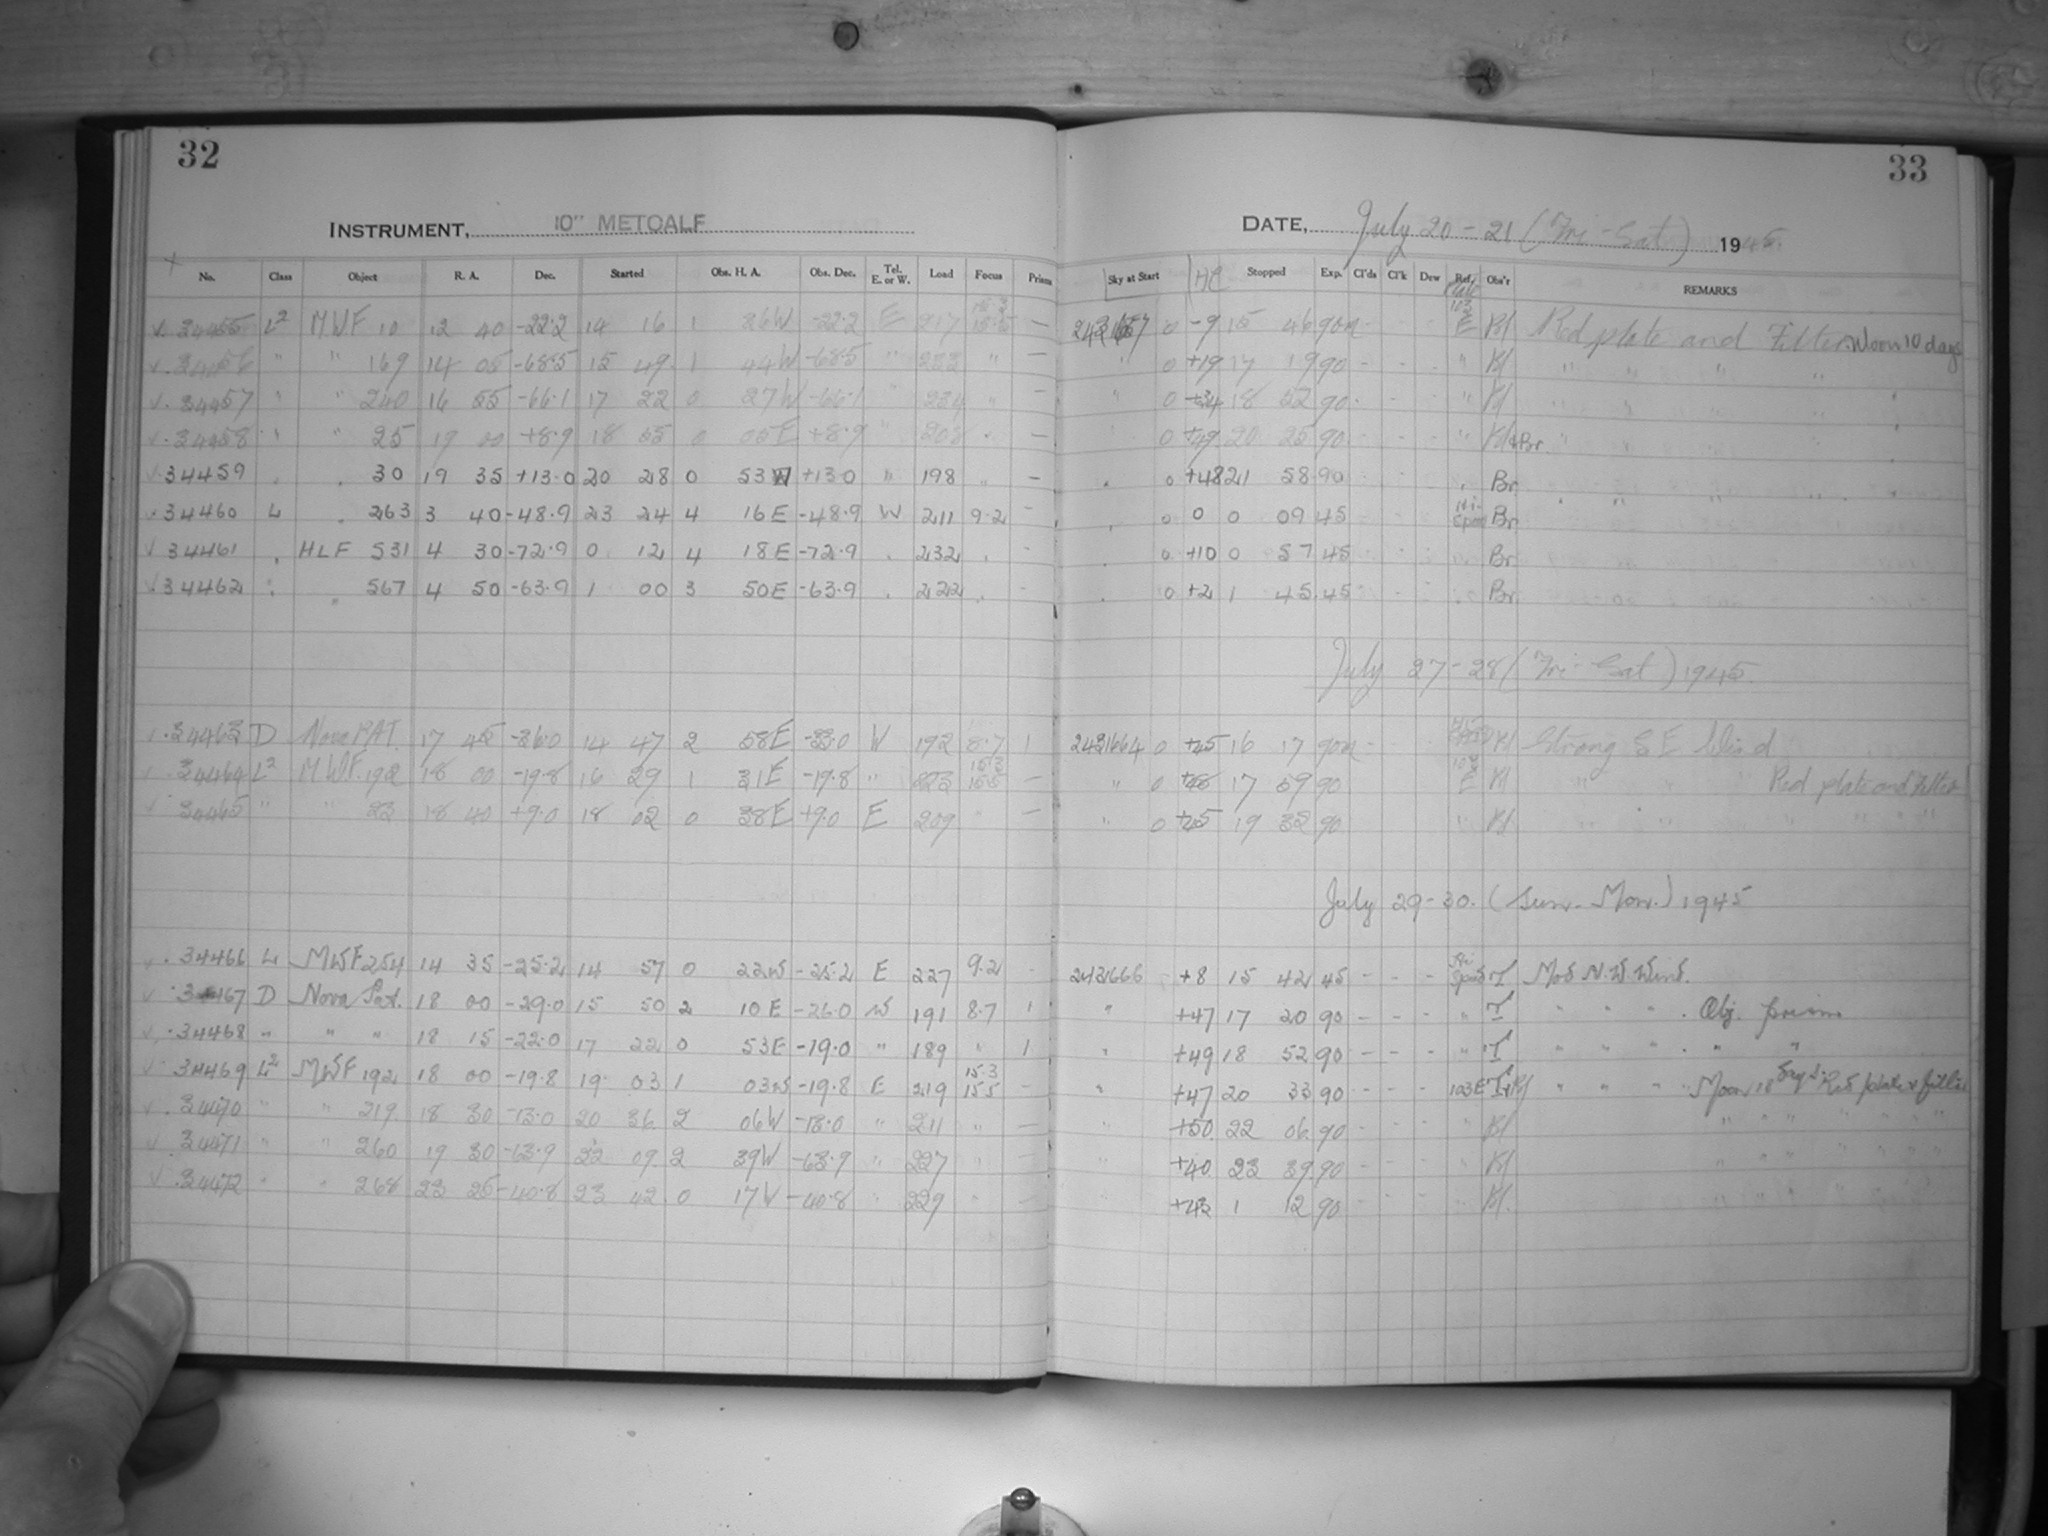 32
33
INSTRUMENT, 10" METCALF
DATE, July 20 - 21 (Fri - Sat) 1945.
No. Class Object R. A. Dec. Started Obs. H. A. Obs. Dec. Tel. E. or W. Load Focus Prism Sky at Start Stopped Exp. Cl'ds Cl'k Dew Ref. Plate Obs'r REMARKS
34455 L2 MWF 10 12 40 -22.2 14 16 1 36W -22.2 E 217 15.3 15.5 — 0 -9 15 46 90m 103 E Kl Red plate and Filter Moon 10 days
34456 " " 169 14 05 -68.5 15 49 1 44W -68.5 " " — " 0 +19 17 19 90 - - - " Kl " " " " "
34457 " " 240 16 55 -66.1 17 22 0 27W -66.1 " 234 " — " 0 +34 18 52 90 - - - " Kl
34458 " " 25 19 00 +8.9 18 55 0 05E +8.9 " 208 " — 0 +49 20 25 90 - - - " Kl&Br.
34459 30 19 35 +13.0 20 28 0 53W +13.0 " 198 " — 0 +48 21 58 90 Br
34460 L 263 3 40 -48.9 23 24 4 16E -48.9 W 211 9.2 - 0 0 0 09 45 Hi-Speed Br
34461 HLF 531 4 30 -72.9 0 12 4 18E -72.9 232 0 +10 0 57 45 Br
34462 567 4 50 -63.9 1 00 3 50E -63.9 222 0 +2 1 45 45 Br
July 27 - 28 (Fri - Sat) 1945.
34463 D Nova PAT. 17 45 14 47 2 58E -33.0 W 192 8.7 1 2431664 0 +45 16 17 90m - - - Kl Strong S E Wind
34464 L2 MWF 192 18 00 -19.8 16 29 1 31E -19.8 " 223 15.3 15.5 — " 0 17 59 90 103 E Kl " " Red plate and Filter
34465 " " 23 18 40 +9.0 18 02 0 38E +9.0 E 209 " — " 0 +45 19 32 90 " Kl " " " "
July 29 - 30. (Sun - Mon.) 1945
34466 L MWF 254 14 35 -25.2 14 57 0 22W -25.2 E 227 9.2 - 2431666 +8 15 42 45 - - - Hi Speed Mod N.W. Wind.
34467 D Nova Pat. 18 00 -29.0 15 50 2 10E -26.0 W 191 8.7 1 " +47 17 20 90 - - - " " " " " Obj. prism
34468 " " " 18 15 -22.0 17 22 0 53E -19.0 " 189 " 1 " +49 18 52 90 - - - " " " " " " "
34469 L2 MWF 192 18 00 -19.8 19 03 1 03W -19.8 E 219 15.3 15.5 - " +47 20 33 90 - - - 103E " " " Moon 18 Days. Red plate & filter
34470 " " 219 18 30 -13.0 20 36 2 06W -13.0 " 211 " — " +50 22 06 90 - - - " Kl " " " "
34471 " " 260 19 30 -63.9 22 09 2 39W -63.9 " 227 " — " +40 23 39 90 - - - " Kl " " " "
34472 " " 268 23 25 -40.8 23 42 0 17W -40.8 " 229 " — " 1 12 90 - - - " Kl. " " " "